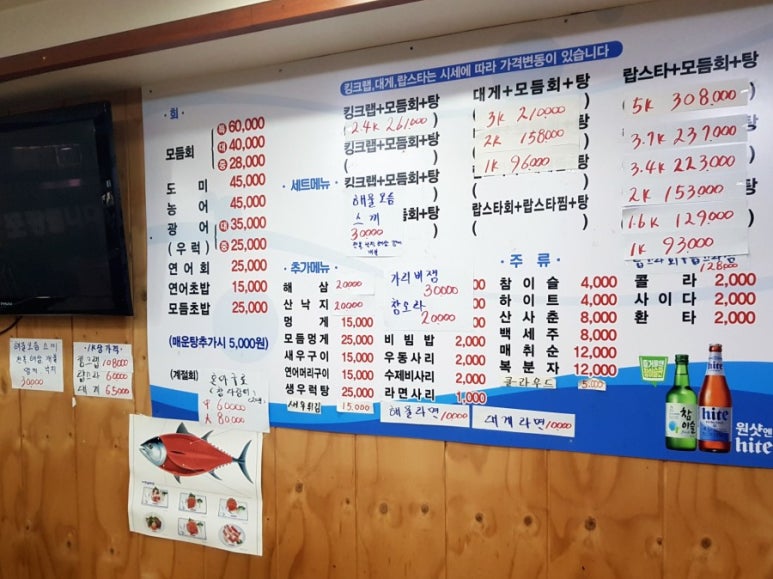 킹크랩,대게,랍스타는 시세에 따라 가격변동이 있습니다
· 회 ·
모듬회
특 60,000
대 40,000
중 28,000
도 미 45,000
농 어 45,000
광 어 대 35,000
(우 럭) 중 25,000
연어회 25,000
연어초밥 15,000
모듬초밥 25,000
(매운탕추가시 5,000원)
(계절회)
中 60000
大 80000
· 세트메뉴 ·
킹크랩+모듬회+탕
(2.4K 261,000)
킹크랩+모듬회+탕
킹크랩+모듬회+탕
해물모듬
스끼
30000
듬회+탕
대게+모듬회+탕
3K 210,000
2K 158,000
1K 96,000
랍스타회+랍스타찜+탕
랍스타+모듬회+탕
5K 308,000
3.7K 237,000
3.4K 223,000
2K 153,000
1.6K 129,000
1K 93000
128,000
· 추가메뉴 ·
해 삼 20000
산낙지 20000
멍 게 15,000
모듬멍게 25,000
새우구이 15,000
연어머리구이 15,000
생우럭탕 25,000
새우튀김 15,000
가리비찜
30000
참소라
20000
비 빔 밥 2,000
우동사리 2,000
수제비사리 2,000
라면사리 1,000
해물라면 10000
대게라면 10000
· 주 류 ·
참 이 슬 4,000
하 이 트 4,000
산 사 춘 8,000
백 세 주 8,000
매 취 순 12,000
복 분 자 12,000
클라우드 5,000
콜 라 2,000
사 이 다 2,000
환 타 2,000
참이슬
hite
원샷엔
hite
해물모듬 스끼
30000
1K찜가격
킹크랩 108000
랍스타 60000
대게 65000